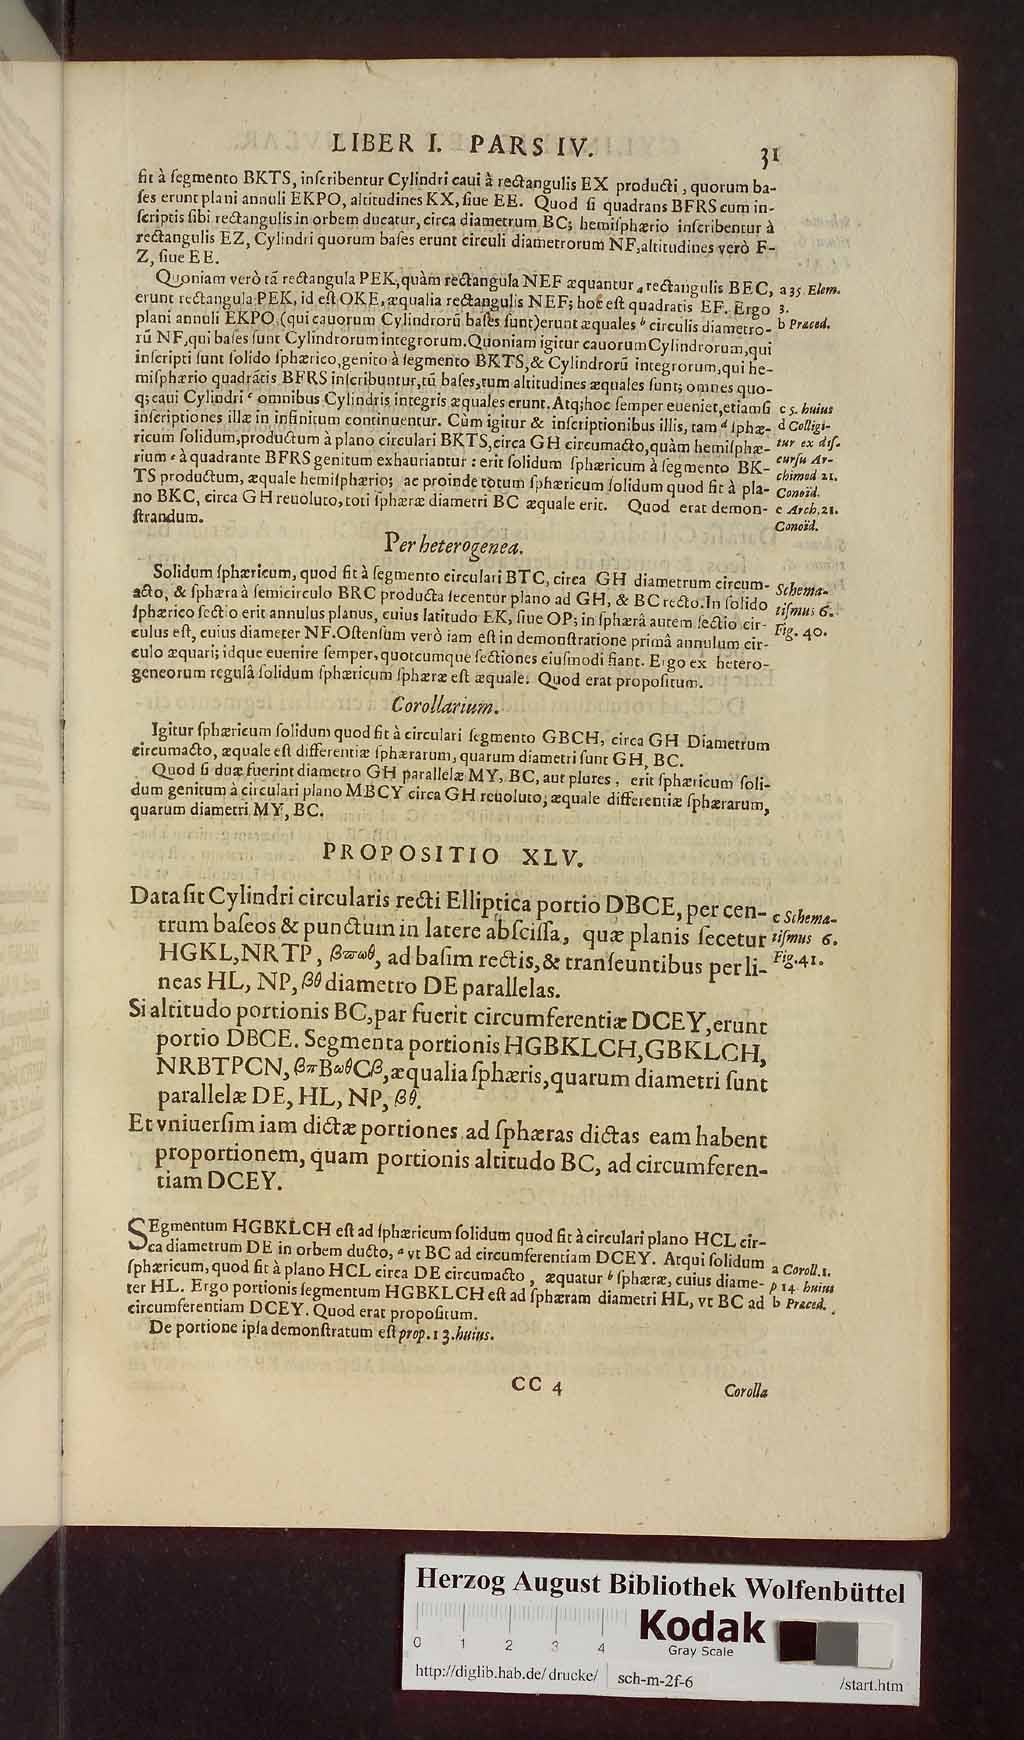 LIBER I. PARS IV. 31
fit à ſegmento BKTS, inſcribentur Cylindri caui à rectangulis EX producti, quorum ba-
ſes erunt plani annuli EKPO, altitudines KX, ſiue EE. Quod ſi quadrans BFRS cum in-
ſcriptis ſibi rectangulis in orbem ducatur, circa diametrum BC; hemiſphærio inſcribentur à
rectangulis EZ, Cylindri quorum baſes erunt circuli diametrorum NF, altitudines verò F-
Z, ſiue EE.
Quoniam verò tā rectangula PEK, quàm rectangula NEF æquantur a rectangulis BEC,
a 35. Elem.
erunt rectangula PEK, id eſt OKE, æqualia rectangulis NEF; hoc eſt quadratis EF. Ergo
3.
plani annuli EKPO (qui cauorum Cylindrorū baſes ſunt) erunt æquales b circulis diametro-
b Præced.
rū NF, qui baſes ſunt Cylindrorum integrorum. Quoniam igitur cauorum Cylindrorum, qui
inſcripti ſunt ſolido ſphærico, genito à ſegmento BKTS, & Cylindrorū integrorum, qui he-
miſphærio quadrātis BFRS inſcribuntur, tū baſes, tum altitudines æquales ſunt; omnes quo-
q; caui Cylindri c omnibus Cylindris integris æquales erunt. Atq; hoc ſemper eueniet, etiamſi
c 5. huius
inſcriptiones illæ in infinitum continuentur. Cùm igitur & inſcriptionibus illis, tam d ſphæ-
d Colligi-
ricum ſolidum, productum à plano circulari BKTS, circa GH circumacto, quàm hemiſphæ-
tur ex diſ-
rium e à quadrante BFRS genitum exhauriantur: erit ſolidum ſphæricum à ſegmento BK-
curſu Ar-
TS productum, æquale hemiſphærio; ac proinde totum ſphæricum ſolidum quod fit à pla-
chimed 21.
Conoïd.
no BKC, circa GH reuoluto, toti ſphæræ diametri BC æquale erit. Quod erat demon-
e Arch. 21.
ſtrandum.
Conoïd.
Per heterogenea.
Solidum ſphæricum, quod fit à ſegmento circulari BTC, circa GH diametrum circum-
Schema-
acto, & ſphæra à ſemicirculo BRC producta ſecentur plano ad GH, & BC recto. In ſolido
tiſmus 6.
ſphærico ſectio erit annulus planus, cuius latitudo EK, ſiue OP; in ſphærâ autem ſectio cir-
Fig. 40.
culus eſt, cuius diameter NF. Oſtenſum verò iam eſt in demonſtratione primâ annulum cir-
culo æquari; idque euenire ſemper, quotcumque ſectiones eiuſmodi fiant. Ergo ex hetero-
geneorum regulâ ſolidum ſphæricum ſphæræ eſt æquale. Quod erat propoſitum.
Corollarium.
Igitur ſphæricum ſolidum quod fit à circulari ſegmento GBCH, circa GH Diametrum
circumacto, æquale eſt differentiæ ſphærarum, quarum diametri ſunt GH, BC.
Quod ſi duæ fuerint diametro GH parallelæ MY, BC, aut plures, erit ſphæricum ſoli-
dum genitum à circulari plano MBCY circa GH reuoluto, æquale differentiæ ſphærarum,
quarum diametri MY, BC.
PROPOSITIO XLV.
Data ſit Cylindri circularis recti Elliptica portio DBCE, per cen-
c Schema-
trum baſeos & punctum in latere abſciſſa, quæ planis ſecetur
tiſmus 6.
HGKL, NRTP, βϖωθ, ad baſim rectis, & tranſeuntibus per li-
Fig. 41.
neas HL, NP, βθ diametro DE parallelas.
Si altitudo portionis BC, par fuerit circumferentiæ DCEY, erunt
portio DBCE. Segmenta portionis HGBKLCH, GBKLCH,
NRBTPCN, βπBωθCβ, æqualia ſphæris, quarum diametri ſunt
parallelæ DE, HL, NP, βθ.
Et vniuerſim iam dictæ portiones ad ſphæras dictas eam habent
proportionem, quam portionis altitudo BC, ad circumferen-
tiam DCEY.
SEgmentum HGBKLCH eſt ad ſphæricum ſolidum quod fit à circulari plano HCL cir-
ca diametrum DE in orbem ducto, a vt BC ad circumferentiam DCEY. Atqui ſolidum
a Coroll. 1.
ſphæricum, quod fit à plano HCL circa DE circumacto, æquatur b ſphæræ, cuius diame-
p 14 huius
ter HL. Ergo portionis ſegmentum HGBKLCH eſt ad ſphæram diametri HL, vt BC ad
b Præced.
circumferentiam DCEY. Quod erat propoſitum.
De portione ipſa demonſtratum eſt prop. 13. huius.
CC 4
Corolla
Herzog August Bibliothek Wolfenbüttel
Kodak
Gray Scale
0 1 2 3 4
http://diglib.hab.de/drucke/ sch-m-2f-6 /start.htm